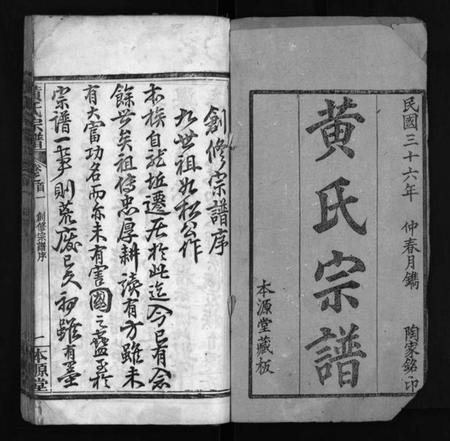 民國三十六年 仲春月鐫 陶家銘印
黃氏宗譜
本源堂藏板
創修宗譜序
九世祖如松公作
本族自龍坵遷居於此迄今已有念
餘世矣祖傳忠厚耕讀有方雖未
有大富功名而亦未有害國之蠹至於
宗譜一事則荒廢已久初雖有墨
黃氏宗譜 卷首一 創修宗譜序 一 本源堂